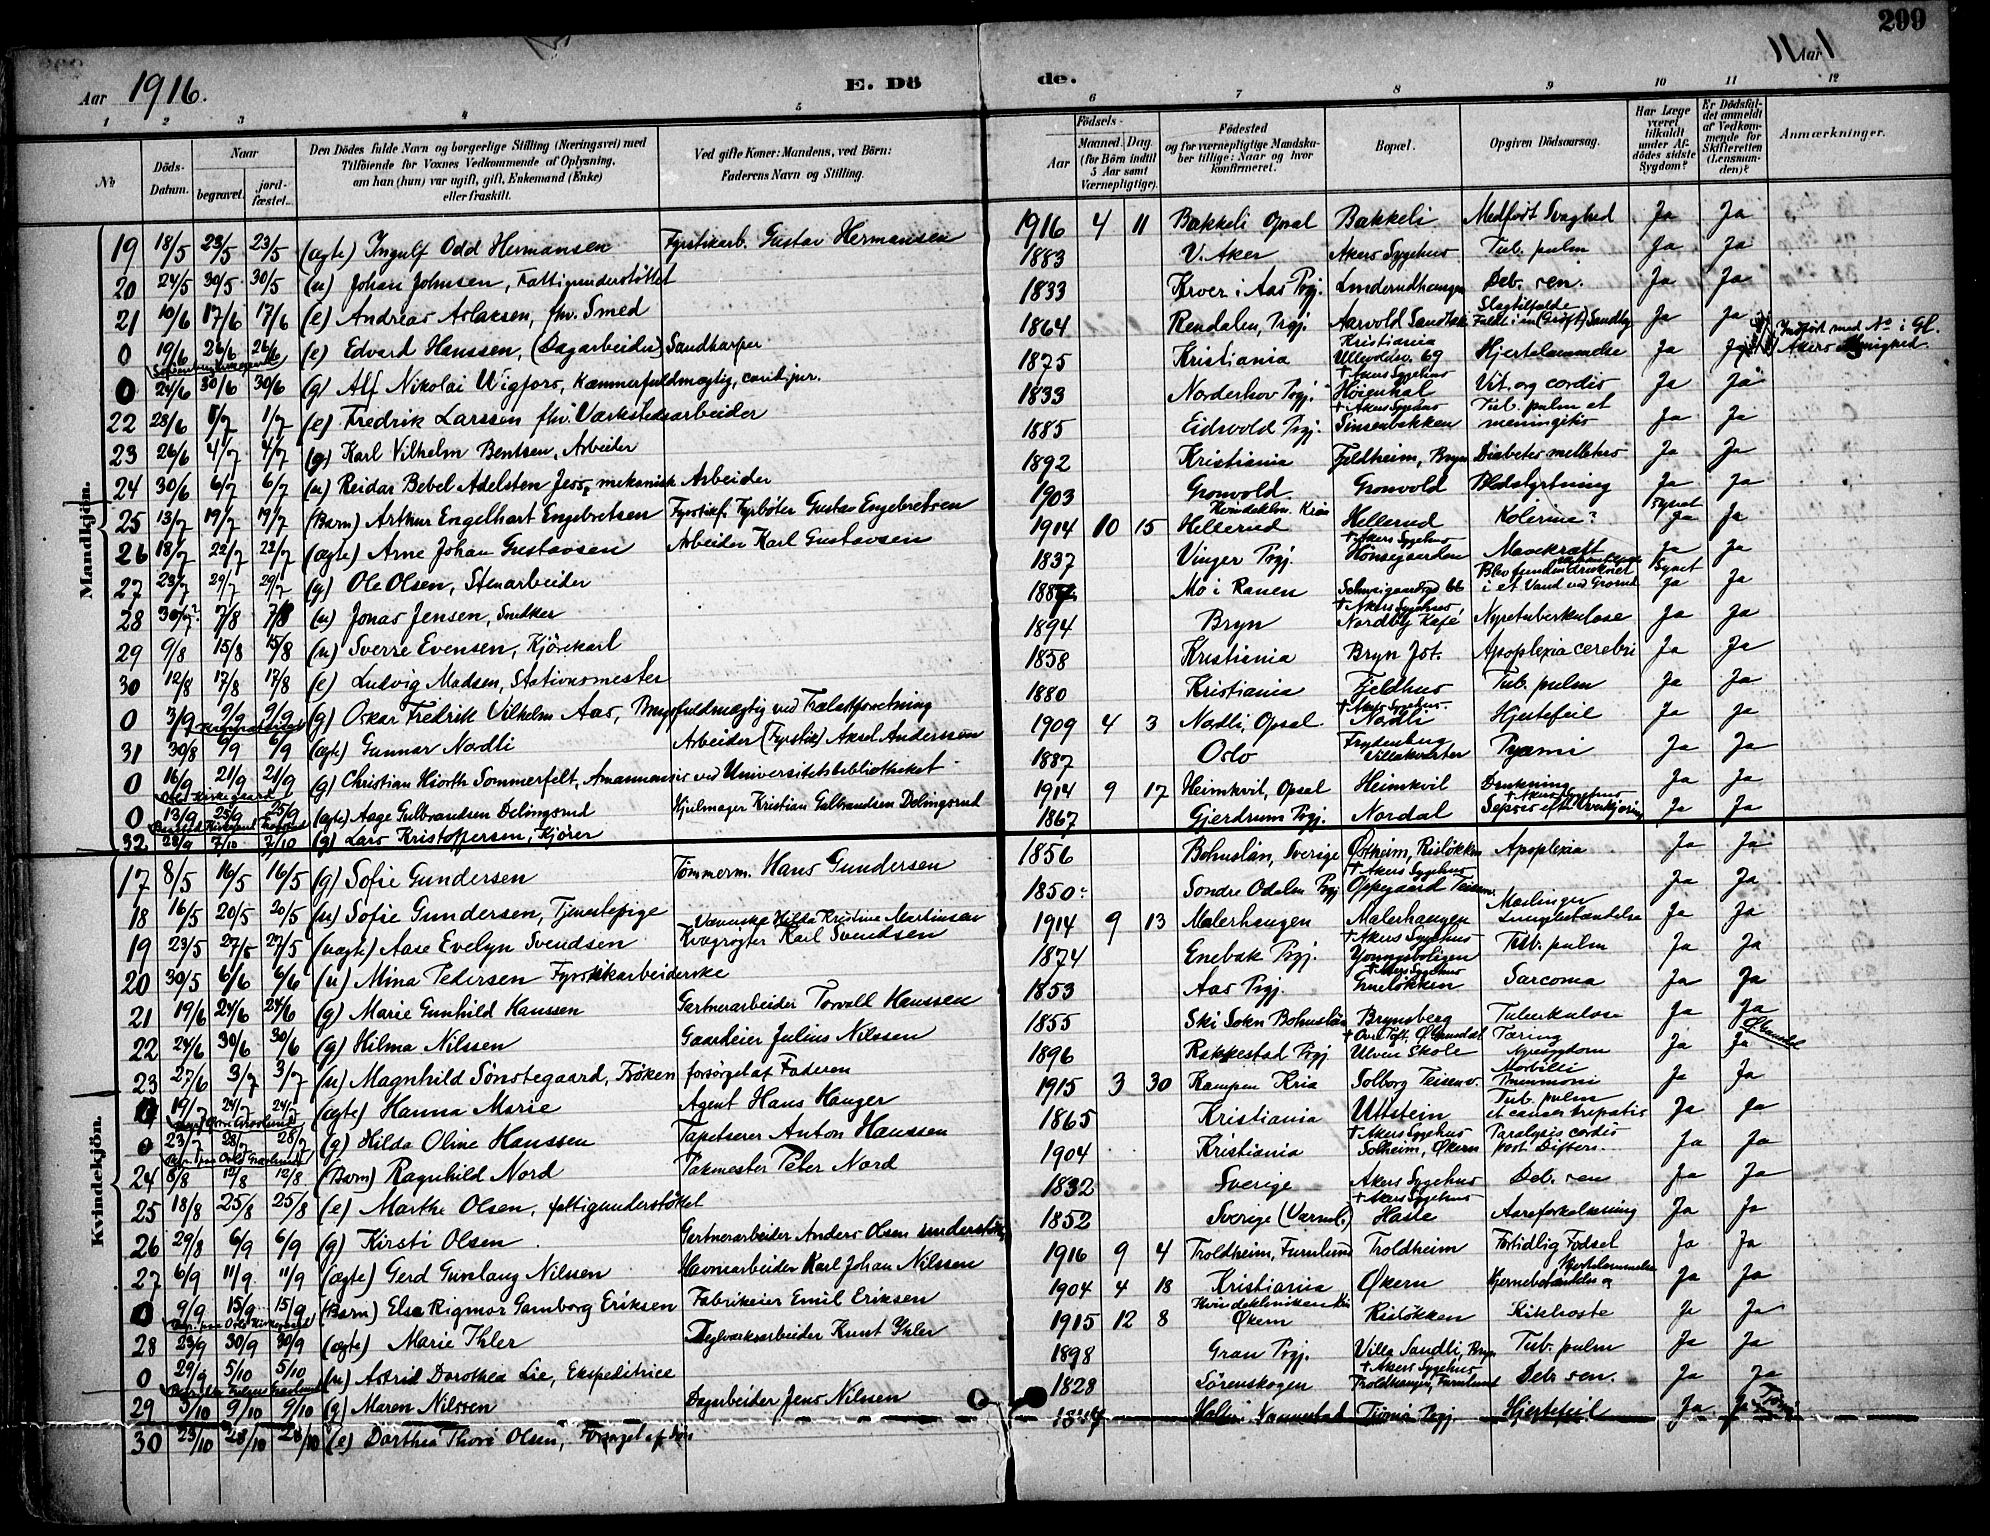 299
Aar 1916.
E. Dö de.
Aar
1 2 3 4 5 6 7 8 9 10 11 12
№
Döds-Datum.
Naar
begravet.
jord-fæstet.
Den Dödes fulde Navn og borgerlige Stilling (Næringsvei) med Tilföiende for Voxnes Vedkommende af Oplysning, om han (hun) var ugift, gift, Enkemand (Enke) eller fraskilt.
Ved gifte Koner: Mandens, ved Börn: Faderens Navn og Stilling.
Födsels-
Aar
Maaned. Dag.
(for Börn indtil 5 Aar samt Værnepligtige).
Födested og for værnepligtige Mandskaber tillige: Naar og hvor konfirmeret.
Bopæl.
Opgiven Dödsaarsag.
Har Læge været tilkaldt under Afdödes sidste Sygdom?
Er Dödsfaldet anmeldt af Vedkommende for Skifteretten (Lensmanden)?
Anmærkninger.
Mandkjön.
19 18/5 23/5 23/5 (ægte) Ingulf Odd Hermansen Fyrstikarb. Gustav Hermansen 1916 4 11 Bakkeli Opsal Bakkeli Medfødt Svaghed Ja Ja
20 24/5 30/5 30/5 (u) Johan Johnsen, Fattigunderstøttet 1883 V. Aker Akers Sygehus Tub. pulm Ja Ja
21 10/6 17/6 17/6 (e) Andreas Aslaksen, fhv. Smed 1833 Kroer i Aas Prgj. Linderudhaugen Deb. sen. Ja Ja
0 19/6 26/6 26/6 (e) Edvard Hanssen, (Dagarbeider) Sandharper 1864 Rendalen, Prgj. Aarvold Sandtak Slagtilfælde Faldt i en (Grøft) Ja Ja
0 24/6 30/6 30/6 (g) Alf Nikolai Wigfors, Kæmnerfuldmægtig, cand. jur. 1875 Kristiania Kristiania Ullevoldsv. 69 Hjertelammelse Ja Indført med № i Gl. Akers Menighed
22 28/6 1/7 1/7 (e) Fredrik Larssen fhv. Værkstedsarbeider 1833 Norderhov Prgj. † Akers Sygehus Høienhal Vit. org cordis Ja Ja
23 26/6 4/7 4/7 (g) Karl Vilhelm Bentsen, Arbeider 1885 Eidsvold Prgj. † Akers Sygehus Sinsenbakken Tub. pulm et meningitis Ja Ja
24 30/6 6/7 6/7 (u) Reidar Bebel Adelsten Jess, mekanisk Arbeider 1892 Kristiania Fjeldheim, Bryn Diabetes mellitus Ja Ja
25 13/7 19/7 19/7 (Barn) Arthur Engelhart Engebretsen Fyrstikf. Fyrbøter Gustav Engebretsen 1903 Gronvold Gronvold Blodstyrtning Ja Ja
26 18/7 22/7 22/7 (ægte) Arne Johan Gustavsen Arbeider Karl Gustavsen 1914 10 15 Kvindeklin. Kria Hellerud Hellerud Kolerine? Synet Ja Ja
27 23/7 29/7 29/7 (g) Ole Olsen, Stenarbeider 1837 Vinger Prgj. † Akers Sygehus Hønsegaarden Mavekræft Ja Ja
28 30/7? 7/8 7/8 (u) Jonas Jensen, Snedker Mo i Ranen Schweigaardsgd 66 Blev funden druknet i et Vand ved Grorud Synet Ja Ja
29 9/8 15/8 15/8 (u) Sverre Evensen, Kjørekarl 1894 Bryn † Akers Sygehus, Nordby Kafé Nyretuberkulose Ja Ja
30 12/8 17/8 17/8 (e) Ludvig Madsen, Stationsmester 1858 Kristiania Bryn Jst. Apoplexia cerebri Ja Ja
0 3/9 9/9 9/9 (g) Oskar Fredrik Vilhelm Aas, Brugsfuldmægtig ved Trælastforretning 1880 Kristiania Fjeldhus Tub. pulm Ja Ja
31 30/8 6/9 6/9 (ægte) Gunnar Nordli Arbeider (Fyrstik) Aksel Anderssen 1909 4 3 Nordli, Opsal † Akers Sygehus. Nordli Hjertefeil Ja Ja
0 16/9 21/9 21/9 (g) Christian Hiorth Sommerfelt, Amanuensis ved Universitetsbibliotheket 1887 Oslo Frydenberg Villakvarter Pyæmi Ja Ja
Oslo Kirkegaard
0 13/9 25/9 25/9 (ægte) Aage Gulbrandsen Delingsrud Hjulmager Kristian Gulbrandsen Delingsrud 1914 9 17 Heimkvil, Opsal Heimkvil Drukning Ja Ja
32 28/9 7/10 7/10 (g) Lars Kristoffersen, Kjører 1867 Gjerdrum Prgj. Nordal † Akers Sygehus Sepsis efter Overkjøring Ja Ja
Kvindekjön.
17 8/5 16/5 16/5 (g) Sofie Gundersen Tømmerm. Hans Gundersen 1856 Bohuslän, Sverige Østheim, Risløkken Apoplexia Ja Ja
18 16/5 20/5 20/5 (u) Sofie Gundersen, Tjenestepige 1850 Søndre Odalen Prgj † Akers Sygehus Oppegaard Teisenv. Ja Ja
19 23/5 27/5 27/5 (uægte) Aase Evelyn Svendsen Væverske Hilda Kristine Martinsen Kvægrøgter Karl Svendsen 1914 9 13 Malerhaugen Malerhaugen Mæslinger Lungebetændelse Ja Ja
20 30/5 6/6 6/6 (u) Mina Pedersen Fyrstikkarbeiderske 1874 Enebak Prgj. † Akers Sygehus Youngsboligen Tub. pulm Ja Ja
21 19/6 24/6 24/6 (g) Marie Gunhild Hanssen Gartnerarbeider Torvall Hanssen 1853 Aas Prgj. † Akers Sygehus Grueløkken Sarcoma Ja Ja
22 24/6 30/6 30/6 (g) Hilma Nilssen Gaardeier Julius Nilssen 1855 Ski Sokn Bohuslän Brynsberg Tuberkulose Ja Ja
23 27/6 3/7 3/7 (u) Magnhild Sønstegaard, Frøken forsørget af Faderen 1896 Rakkestad Prgj Ulven Skole Tæring Nyresygdom Ja Ja
19/7 24/7 24/7 (ægte) Hanna Marie Agent Hans Hanger 1915 3 30 Kampen Kria Solborg Teisenv. Morbilli Pneumoni Ja Ja
0 23/7 28/7 28/7 (g) Hilda Oline Hanssen Tapetserer Anton Hanssen 1865 Kristiania Uttstein Tub. pulm et cancer hepatis Ja Ja
24 8/8 12/8 12/8 (Barn) Ragnhild Nord Pakmester Peter Nord 1904 Kristiania † Akers Sygehus Solheim, Økern Paralysis cordis post Difteri. Ja Ja
25 18/8 25/8 25/8 (e) Marthe Olsen, fattigunderstøttet 1832 Sverige Akers Sygehus Deb. sen Ja Ja
26 29/8 6/9 6/9 (g) Kirsti Olsen Gartnerarbeider Anders Olsen 1852 Sverige (Værml.) † Akers Sygehus Hasle Aareforkalkning Ja Ja
27 6/9 11/9 11/9 (ægte) Gerd Gunlaug Nilssen Havnearbeider Karl Johan Nilssen 1916 9 4 Troldheim, Furulund Troldheim Fortidlig Fødsel Ja Ja
9/9 15/9 15/9 (Barn) Else Rigmor Gamborg Eriksen Fabrikeier Emil Eriksen 1904 4 18 Kristiania Økern Hjertelammelse Hjernebetændelse Ja Ja
28 23/9 30/9 30/9 (ægte) Marie Ihler Teglverksarbeider Knut Ihler 1915 12 8 Kvindekliniken Kria Økern Risløkken Kikhoste Ja Ja
0 29/9 5/10 5/10 (u) Astrid Dorothea Lie, Ekspeditrice 1898 Gran Prgj. Villa Sandli, Bryn Tub. pulm Ja Ja
29 3/10 9/10 9/10 (g) Maren Nilssen Dagarbeider Jens Nilsen 1828 Sørenskogen † Akers Sygehus Troldhaugen, Furulund Deb. sen. Ja Ja
30 23/10 28/10 28/10 (e) Dorthea Thori Olsen, Nannestad Prgj. Hjertefeil Ja